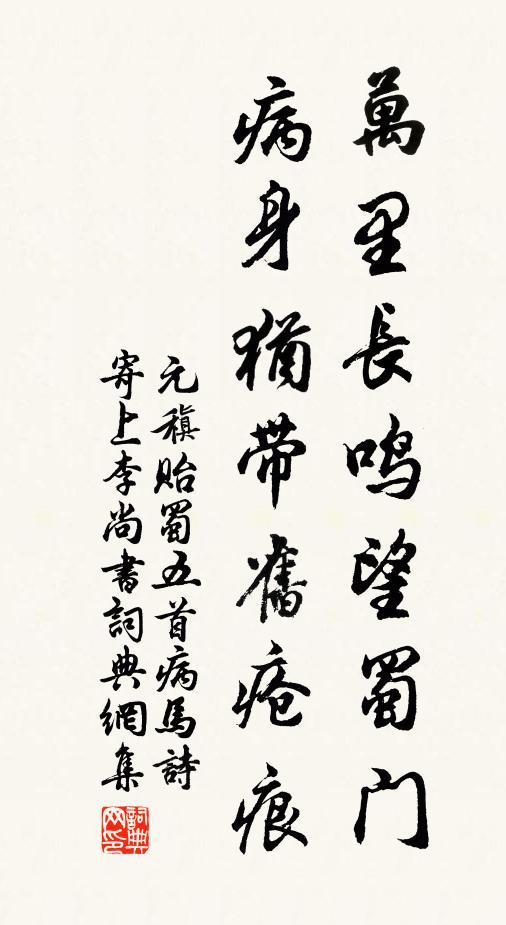 萬里長鳴望蜀門
病身猶帶舊瘡痕
元稹貽蜀五首病馬詩
寄上李尚書詞典網集
詞典
网印